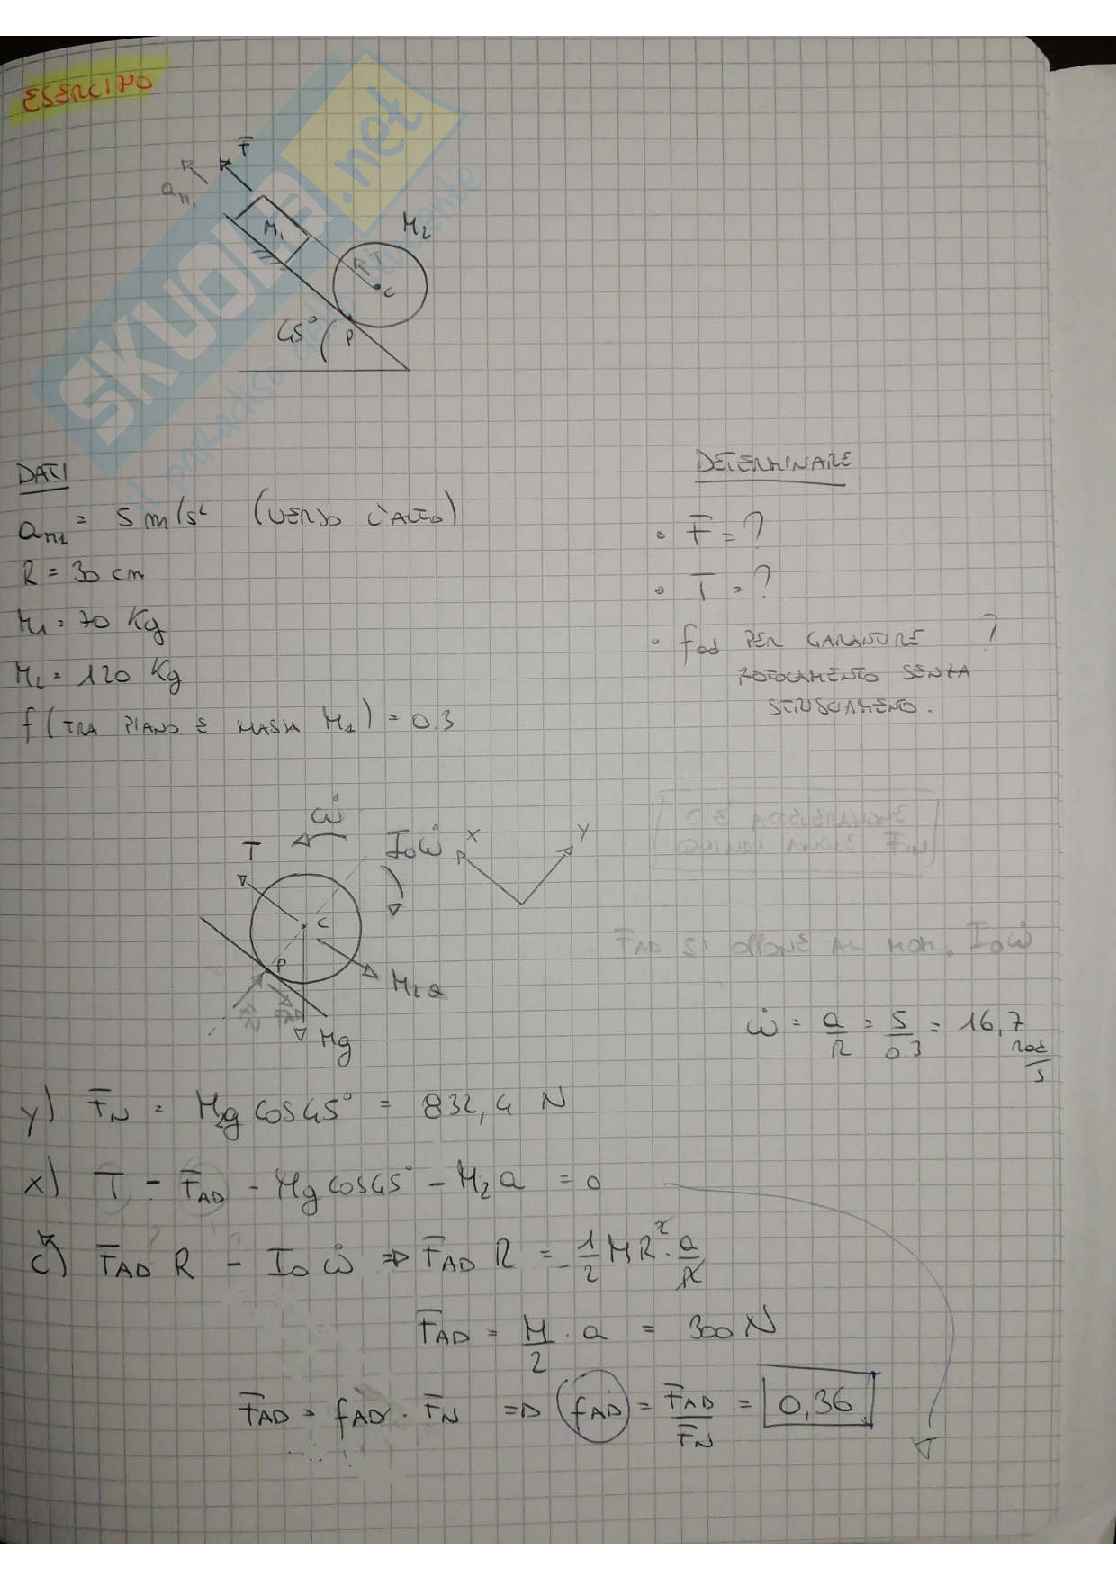 ESERCIZIO
F
a_m1
M1
M2
R
C
45°
P
SKUOLA.net
DATI
a_m1 = 5 m/s² (VERSO L'ALTO)
R = 30 cm
M1 = 70 Kg
M2 = 120 Kg
f (TRA PIANO E MASSA M1) = 0.3
DETERMINARE
• F = ?
• T = ?
• fad PER GARANTIRE ?
ROTOLAMENTO SENZA
STRISCIAMENTO.
ω̇
T
I₀ω̇
x
y
C
P
M2a
Mg
FAD SI OPPONE AL MOM. I₀ω̇
ω̇ = a/R = 5/0.3 = 16,7 rad/s
y) FN = M2g cos45° = 832,4 N
x) T - FAD - Mg cos45° - M2a = 0
C) FAD R - I₀ω̇ ⇒ FAD R = 1/2 MR² · a/R
FAD = M/2 · a = 300 N
FAD = fAD · FN ⇒ fAD = FAD/FN = 0,36